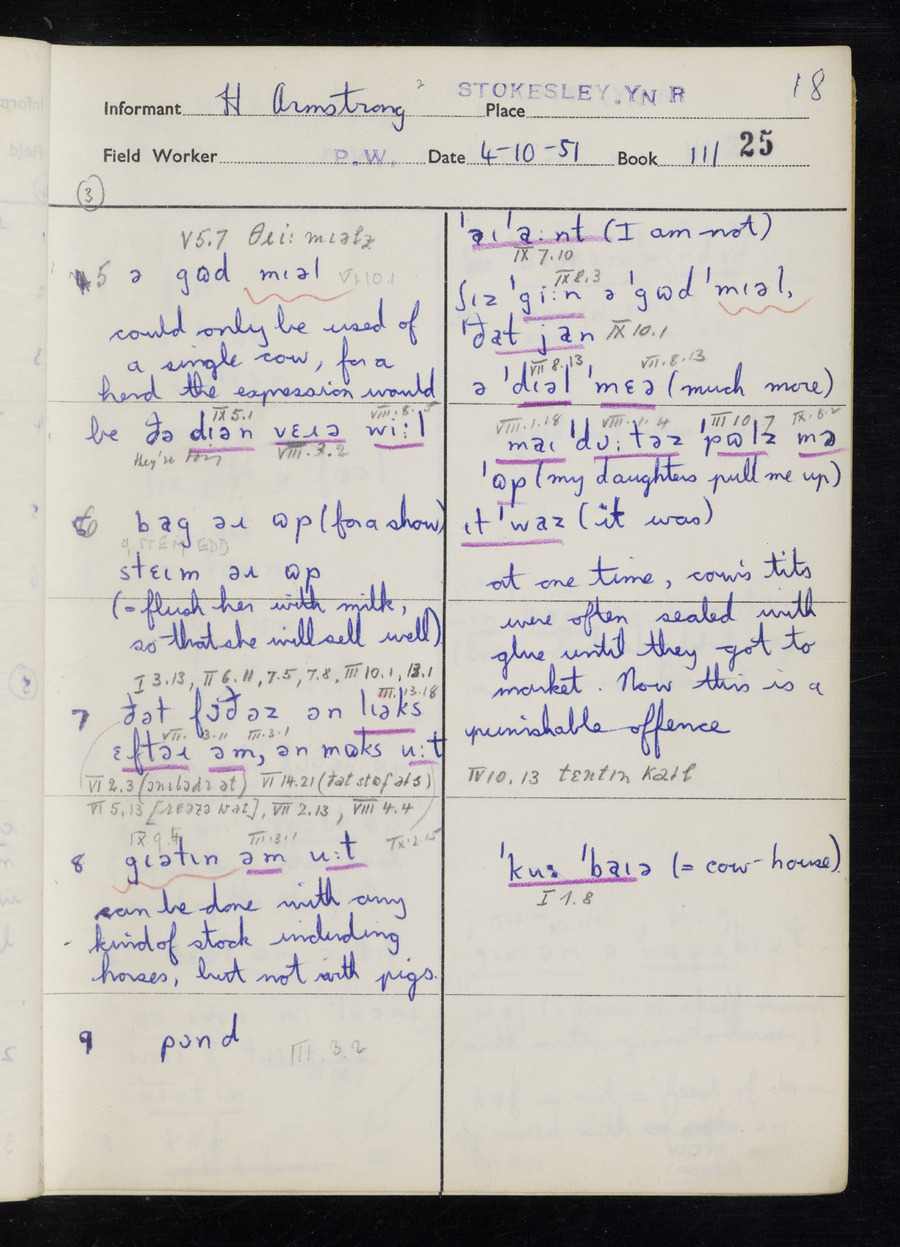 18
Informant H Armstrong 2 Place STOKESLEY. YN R
Field Worker P.W. Date 4-10-51 Book III 25
3
V5.7 θɹiː mɪəlz
5 ə gɷd mɪəl VI 10.1
could only be used of
a single cow, for a
herd the expression would
IX 5.1 VIII.8.5
be ðə dɪən vɛɹə wiːl
they're VIII.3.2
6 bag əɹ ɷp (for a show)
STEM EDD
stɛɪm əɹ ɷp
(= flush her with milk,
so that she will sell well)
I 3.13, II 6.11, 7.5, 7.8, III 10.1, 13.1
III.13.18
7 ðat fɔðəz ən lɪəks
VII. 3.11 III.3.1
ɛftəɹ əm, ən maks uːt
VI 2.3 VI 14.21
VI 5.13, VII 2.13, VIII 4.4
IX.9.4 III.3.1 IX.2.15
8 gɪətɪn əm uːt
can be done with any
kind of stock including
horses, but not with pigs.
9 pɔnd III.3.2
ˈaɪ ˈaːnt (I am not)
IX 7.10
IX 8.3
ʃɪz ˈgiːn ə ˈgɷd ˈmɪəl,
ˈðat jan IX 10.1
VII 8.13 VII.8.13
ə ˈdɪəl ˈmɛə (much more)
VIII.1.18 VIII.1.4 III 10.7 IX.8.2
maɪ ˈdɔːtəz ˈpɷlz mə
ˈɷp (my daughters pull me up)
ɪt ˈwaz (it was)
at one time, cow's tits
were often sealed with
glue until they got to
market. Now this is a
punishable offence
IV 10.13
ˈkuː ˈbaɪə (= cow-house)
I 1.8